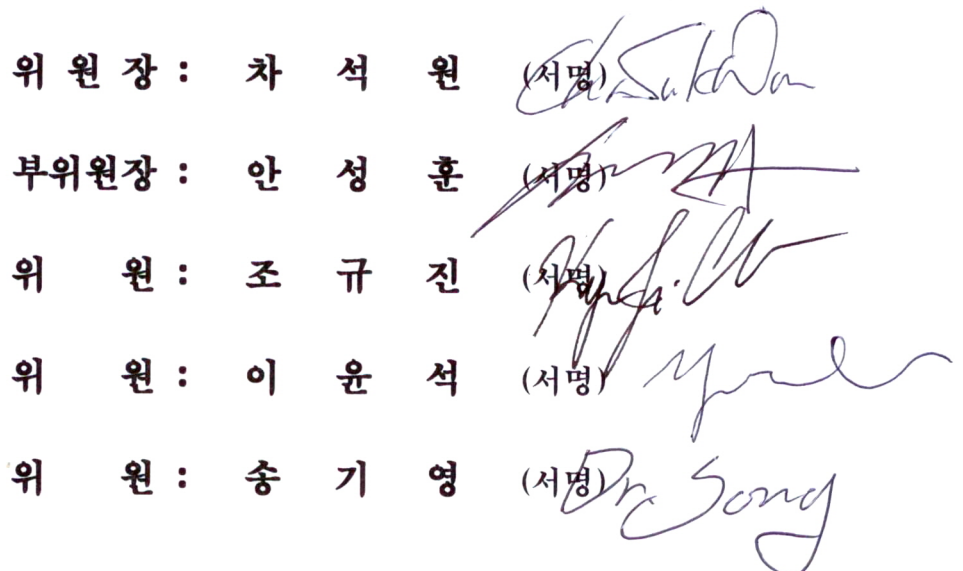 위 원 장 : 차 석 원 (서명) Cha Suk Won
부위원장 : 안 성 훈 (서명)
위 원 : 조 규 진 (서명) Kyu Jin Cho
위 원 : 이 윤 석 (서명)
위 원 : 송 기 영 (서명) Dr. Song